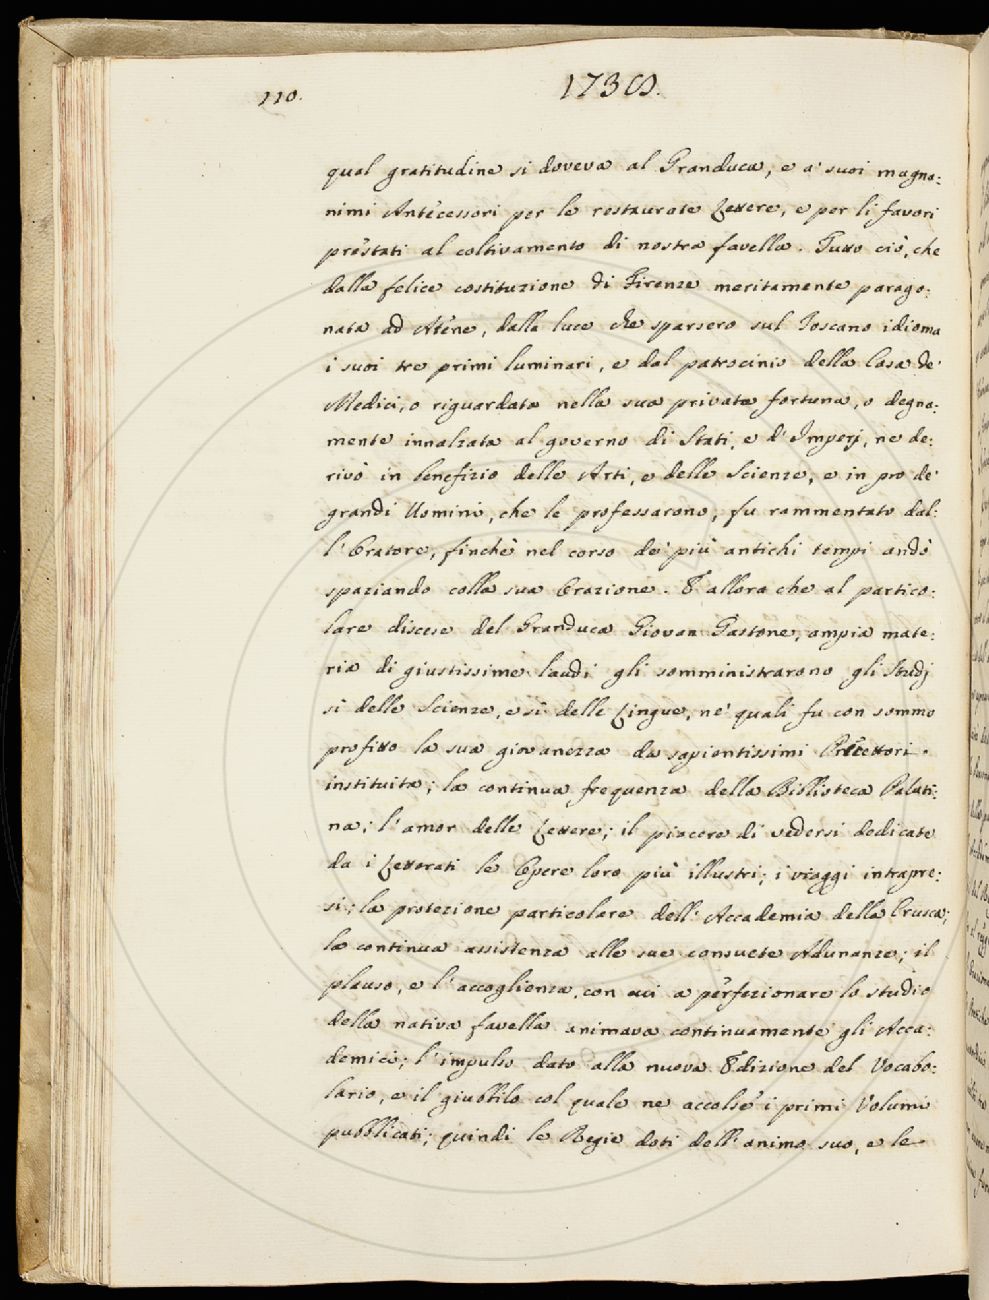 110.
1738.
qual gratitudine si doveva al Granduca, e a' suoi magna:
nimi Antecessori per le restaurate Lettere, e per li favori
prestati al coltivamento di nostra favella. Tutto ciò, che
dalla felice costituzione di Firenze meritamente parago:
nata ad Atene, dalla luce che sparsero sul Toscano idioma
i suoi tre primi luminari, e dal patrocinio della Casa de'
Medici, o riguardata nella sua privata fortuna, o degna:
mente innalzata al governo di Stati, e d'Imperj, ne de:
rivò in benefizio delle Arti, e delle Scienze, e in pro de'
grandi Uomini, che le professarono; fu rammentato dal:
l'Oratore, finchè nel corso de' più antichi tempi andò
spaziando colla sua Orazione. E allora che al partico:
lare discese del Granduca Giovan Gastone, ampia mate:
ria di giustissime laudi gli somministrarono gli Studj
sì delle Scienze, e sì delle Lingue, ne' quali fu con sommo
profitto la sua giovanezza da sapientissimi Precettori
instituita; la continua frequenza della Biblioteca Palati:
na; l'amor delle Lettere; il piacere di vedersi dedicate
da i Letterati le Opere loro più illustri; i viaggi intrapre:
si; la protezione particolare dell'Accademia della Crusca;
la continua assistenza alle sue consuete Adunanze; il
plauso, e l'accoglienza, con cui a perfezionare lo studio
della nativa favella animava continuamente gli Acca:
demici; l'impulso dato alla nuova Edizione del Vocabo:
lario, e il giubbilo col quale ne accolse i primi Volumi
pubblicati; quindi le Regie doti dell'animo suo, e le